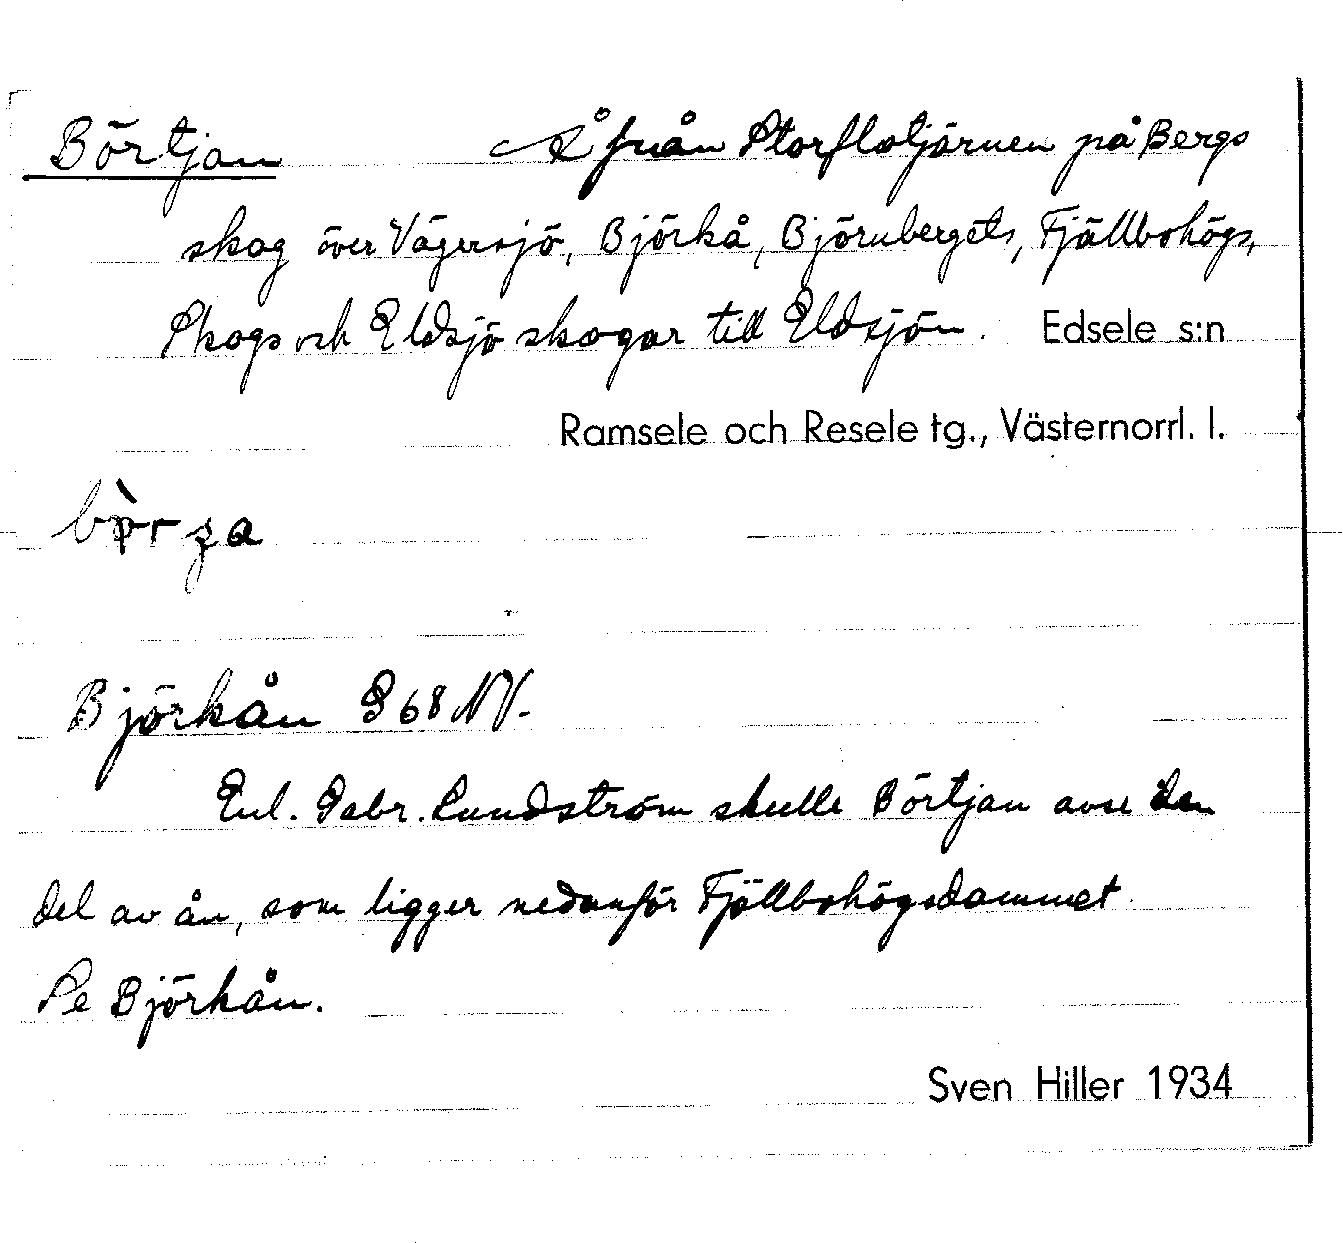 Börtjan Å från Storflotjärnen på Bergs
skog över Vägersjö, Björkå, Björnbergets, Fjällbohögs,
Skogs och Eldsjö skogar till Eldsjön. Edsele s:n
Ramsele och Resele tg., Västernorrl. l.
Björkån G 68 NV.
Enl. Gabr. Lundström skulle Börtjan avse den
del av ån, som ligger nedanför Fjällbohögsdammet
Se Björkån.
Sven Hiller 1934